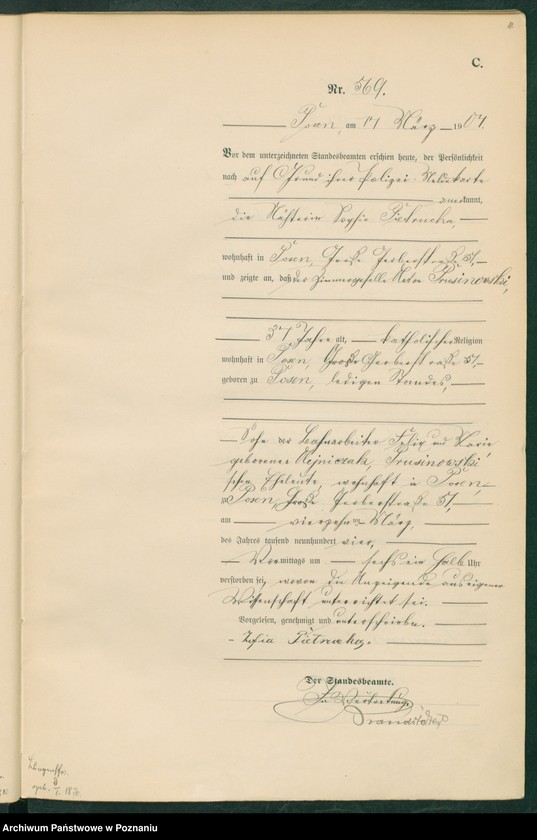 C.
Nr. 569.
Posen, am 17 März 1904.
Vor dem unterzeichneten Standesbeamten erschien heute, der Persönlichkeit
nach auf Grund ihrer Polizei-Meldekarte
anerkannt,
die Näherin Sophie Pietrucha,
wohnhaft in Posen, Große Gerberstraße 51,
und zeigte an, daß der Zimmergeselle Prusinowski,
37 Jahre alt, katholischer Religion
wohnhaft in Posen, Große Gerberstraße 51,
geboren zu Posen, ledigen Standes,
Sohn der Bahnarbeiter Felix und Marie
geborener Rejniczak, Prusinowski
schen Eheleute, wohnhaft in Posen,
zu Posen, Große Gerberstraße 51,
am vierzehnten März,
des Jahres tausend neunhundert vier,
Vormittags um sechs ein halb Uhr
verstorben sei, wovon die Anzeigende aus eigener
Wissenschaft unterrichtet sei.
Vorgelesen, genehmigt und unterschrieben.
Zofia Pietrucha.
Der Standesbeamte.
In Vertretung
geb.
Archiwum Państwowe w Poznaniu